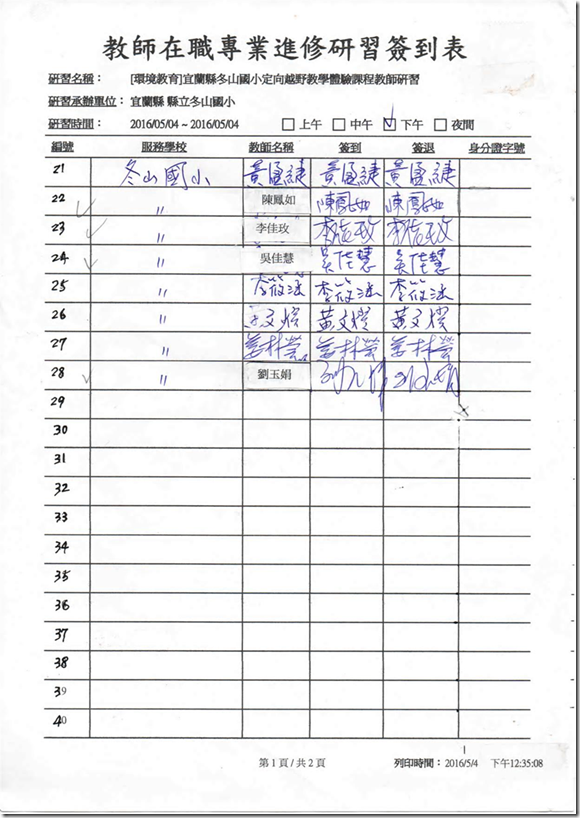 教師在職專業進修研習簽到表
研習名稱： [環境教育]宜蘭縣冬山國小定向越野教學體驗課程教師研習
研習承辦單位： 宜蘭縣 縣立冬山國小
研習時間： 2016/05/04 ~ 2016/05/04 □ 上午 □ 中午 ☑ 下午 □ 夜間
編號 服務學校 教師名稱 簽到 簽退 身分證字號
21 冬山國小 黃
22 〃 陳鳳如 陳鳳如 陳鳳如
23 〃 李佳玫 李佳玫 李佳玫
24 〃 吳佳慧 吳佳慧 吳佳慧
25 〃 李筱 李筱 李筱
26 〃 黃文 黃文
27 〃
28 〃 劉玉娟
29
30
31
32
33
34
35
36
37
38
39
40
第 1 頁 / 共 2 頁 列印時間： 2016/5/4 下午12:35:08